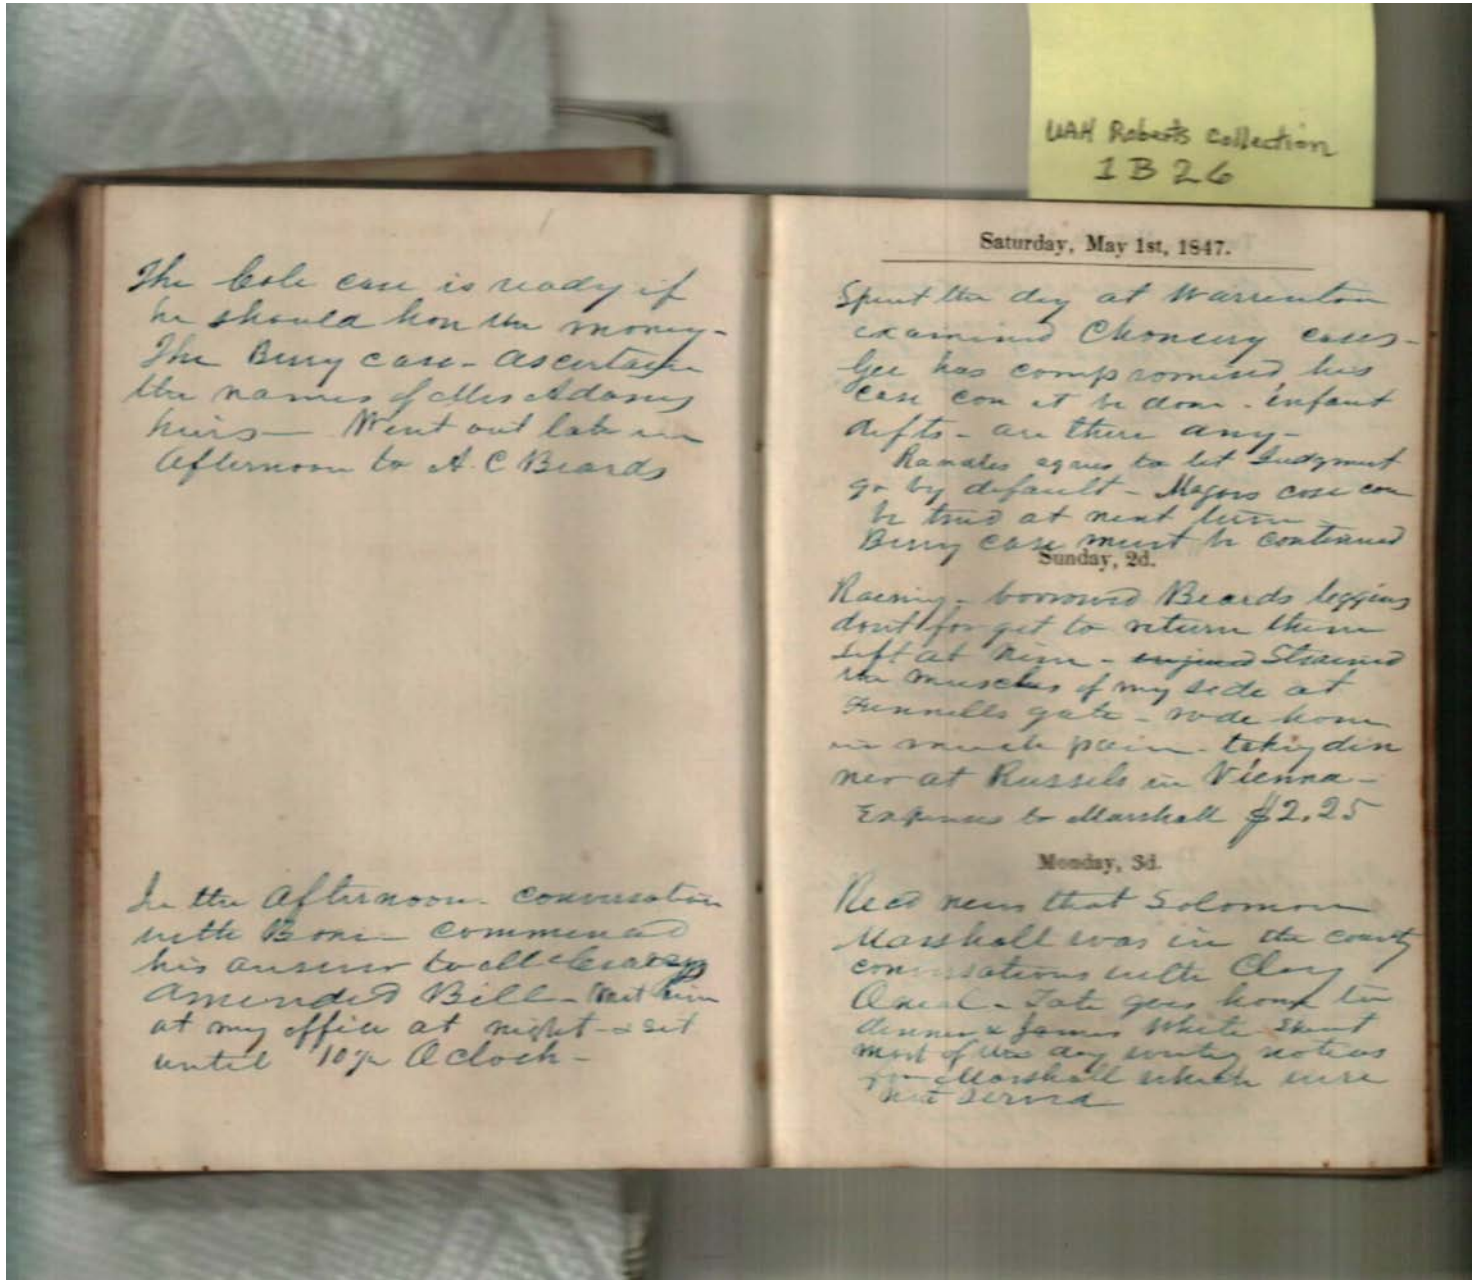 UAH Roberts Collection
1B26
The Cole case is ready if
he should hon the money-
The Berry case - Ascertain
the names of Mrs Adams
heirs - Went out late in
Afternoon to A. C Beards
In the Afternoon - conversation
with Bone - commenced
his answer to
Amended Bill - Met him
at my office at night - & set
until 10 Oclock -
Saturday, May 1st, 1847.
Spent the day at Warrenton
examined Chancery cases -
Gee has compromised his
case con it be done - infant
defts - are there any -
agrees to let Judgment
go by default - Majors case can
be tried at next term
Berry case must be continued
Sunday, 2d.
Raening - borrowed Beards leggins
dont forget to return them
Left at - injured Strained
the muscles of my side at
Funnells gate - rode home
in much pain - taking din
ner at Russels in Vienna -
Expenses to Marshall $2.25
Monday, 3d.
Recd news that Solomon
Marshall was in the county
conversations with Clay
Oneal - Tate goes home to
dinner & James White Spent
most of the day writing notices
for Marshall which were
not served